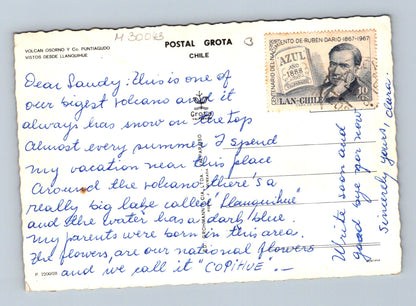 M30023
POSTAL GROTA
CHILE
VOLCAN OSORNO Y Co. PUNTIAGUDO
VISTOS DESDE LLANQUIHUE
CENTENARIO DEL NACIMIENTO DE RUBEN DARIO 1867-1967
AZUL
1888
10
LAN-CHILE
Dear Sandy: this is one of
our bigest volcano and it
always has snow on the top
Almost every summer I spend
my vacation near this place
Around the volcano there's a
really big lake called "Llanquihue"
and the water has a dark blue.
my parents were born in this area.
the flowers, are our national flowers
and we call it "COPIHUE".-
Write soon and
good bye for now
Sincerely yours,